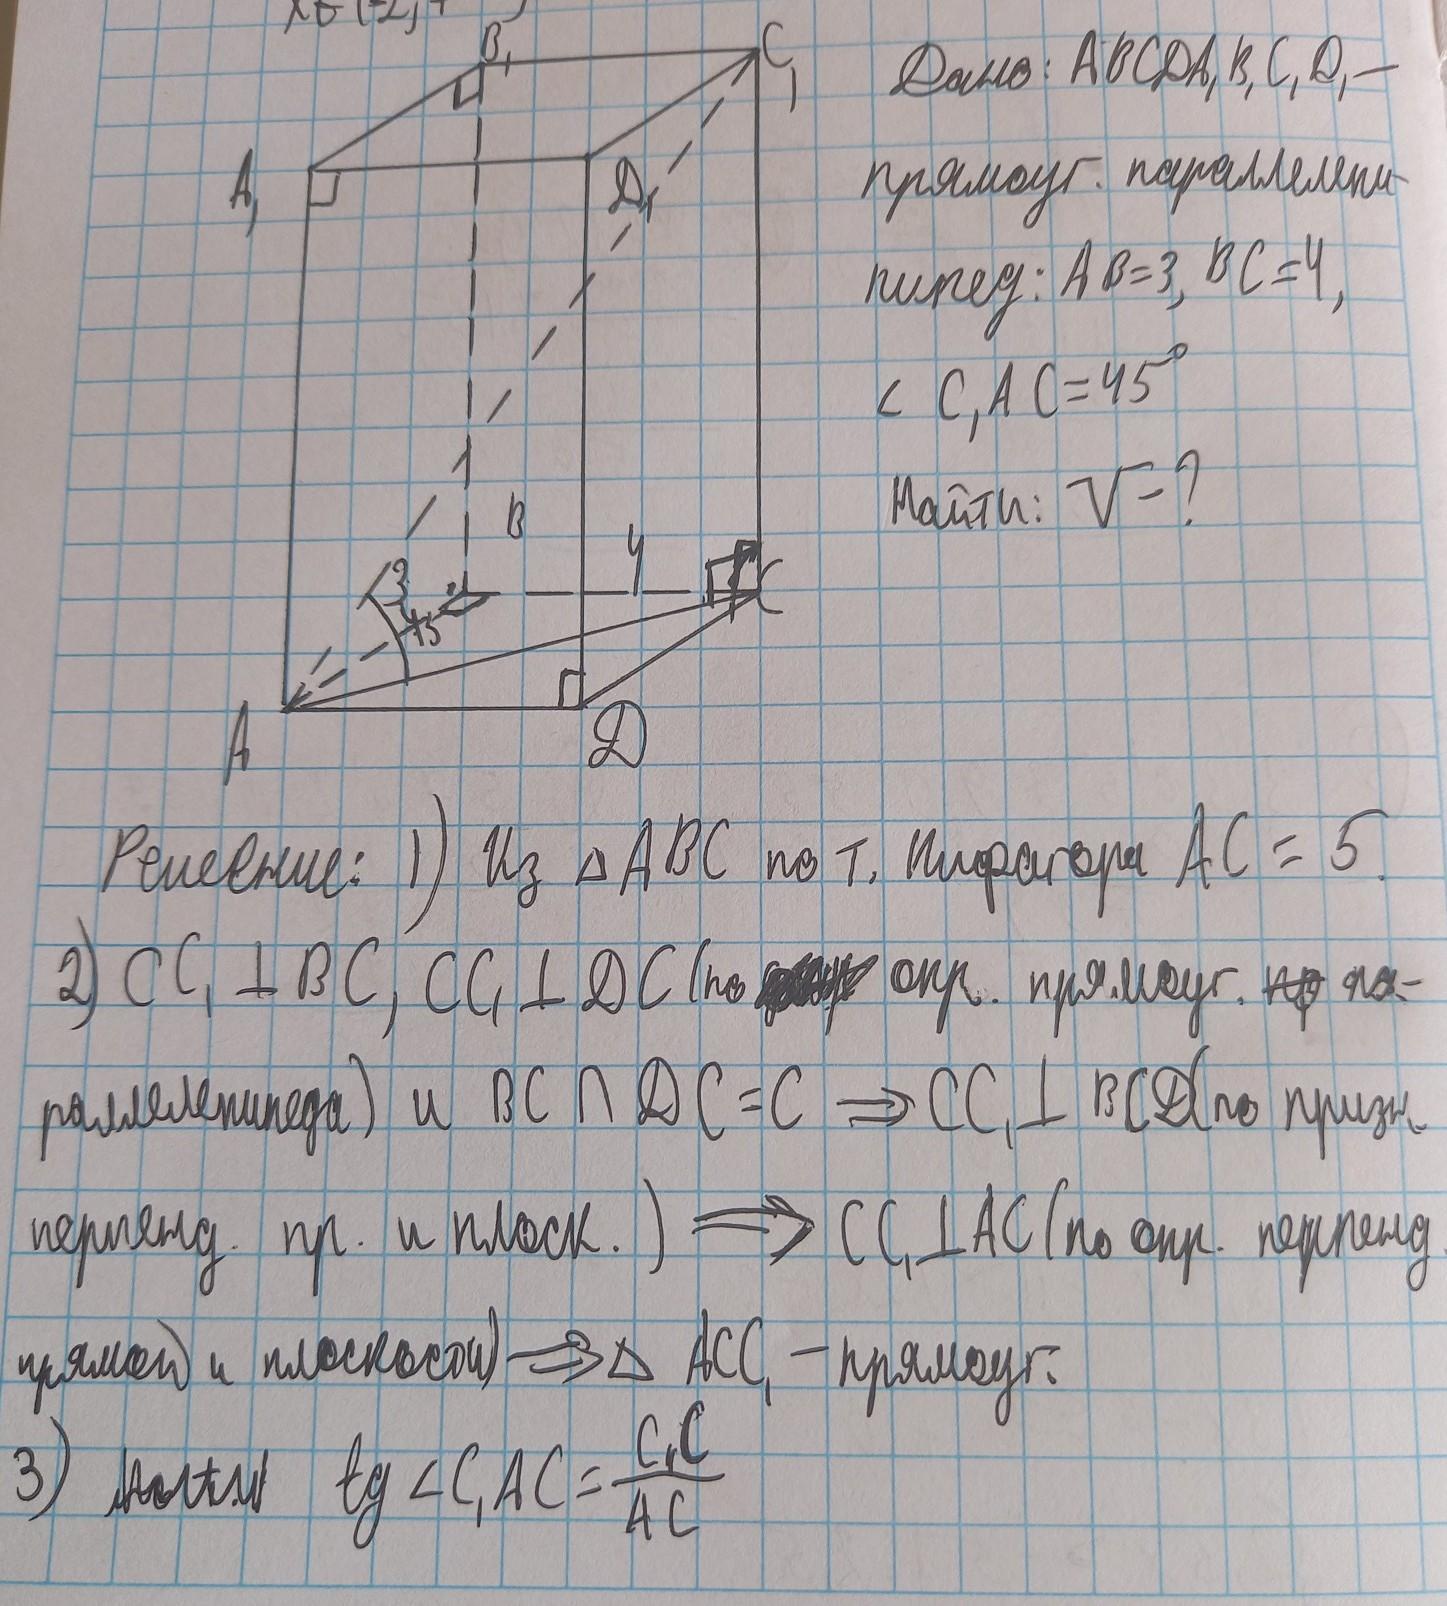 B₁
C₁
A₁
D₁
B
4
3
45
C
A
D
Дано: ABCDA₁B₁C₁D₁ –
прямоуг. параллелепи-
пипед: AB=3, BC=4,
∠ C₁AC=45°
Найти: V=?
Решение: 1) Из △ABC по т. Пифагора AC = 5.
2) CC₁⊥BC, CC₁⊥DC (по опр. прямоуг. па-
раллелепипеда) и BC ∩ DC=C ⇒ CC₁⊥ BCD (по призн.
перпенд. пр. и плоск.) ⇒ CC₁⊥AC (по опр. перпенд.
прямой и плоскости) ⇒ △ ACC₁ – прямоуг.
3) tg ∠C₁AC = C₁C/AC